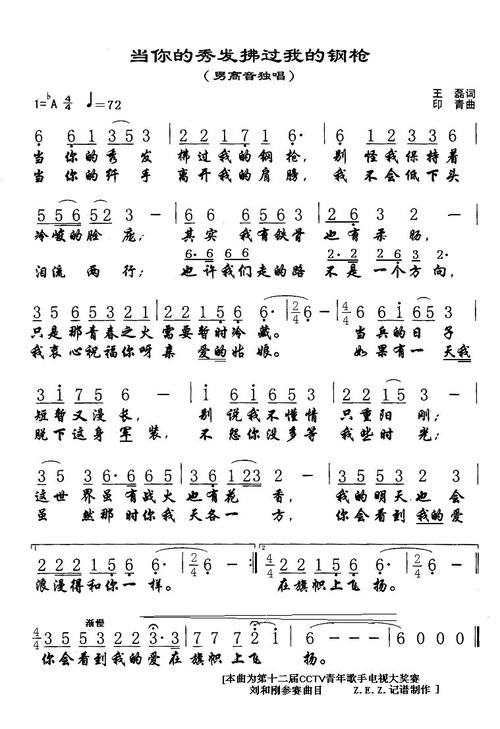 当你的秀发拂过我的钢枪
（男高音独唱）
1=♭A 4/4 ♩=72
王磊词
印青曲
6 6 1 3 5 3 | 2 2 2 1 7 1 6· | 6 6 1 6 5 4 5
当你的秀发 拂过我的钢枪，别怪我保持着
当你的纤手 离开我的肩膀，我不会低下头
5 5 6 5 2 3 － | 6 6 6 5 6 3 | 2·6 6 5 －
冷峻的脸庞； 其实我有铁骨 也有柔肠，
6·6 6 6 2·2 2 1 2
泪流两行； 也许我们走的路 不是一个方向，
3 5 6 5 3 2 1 | 2 2 2 1 5 6 6· | 2/4 6 － | 4/4 6 6 1 6 5 3
只是那青春之火需要暂时冷藏。 当兵的日子
我衷心祝福你呀亲爱的姑娘。 如果有一天我
3 1 7 6 5 － | 6 6 1 6 5 3 | 2 3 5 2 3 －
短暂又漫长， 别说我不懂情只重阳刚；
脱下这身军装， 不怨你没多等我些时光；
5 5 3 3·6 6 5 | 3 6 1 2 3 2 － | 5 5 5 3 2 2
这世界虽有战火也有花香，我的明天也会
虽然那时你我天各一方，你会看到我的爱
1. 2 2 2 1 5 6 | 2/4 6 － :‖ 2. 2 2 2 1 5 6 6 － | 2/4 6 －
浪漫得和你一样。 在旗帜上飞扬。
渐慢
4/4 3 5 5 3 5 2 2 2 | 7 7 7 7 2 1 | 6 － － － | 6 － － －
你会看到我的爱在旗帜上飞扬。
[本曲为第十二届CCTV青年歌手电视大奖赛
刘和刚参赛曲目 Z.E.Z.记谱制作 ]